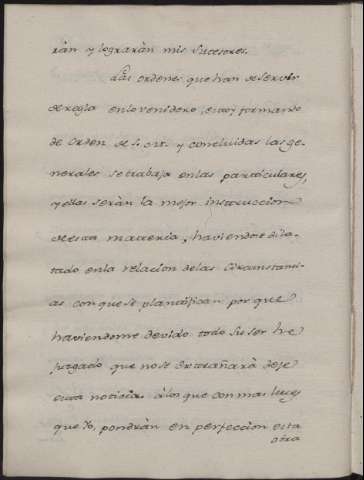 ràn y lograràn mis sucesores.
Las ordenes que han de servir
de regla en lo venidero, estoy formando
de orden de S. M. y concluidas las ge-
nerales se trabaja en las particulares,
y ellas seràn la mejor instruccion
de esta materia, haviendose dila-
tado en la relacion de las circunstanci-
as con que se plantifican por que
haviendome devido todo su ser he
juzgado que no se extrañarà deje
esta noticia à los que con mas luces
que Yo, pondràn en perfeccion esta
otra